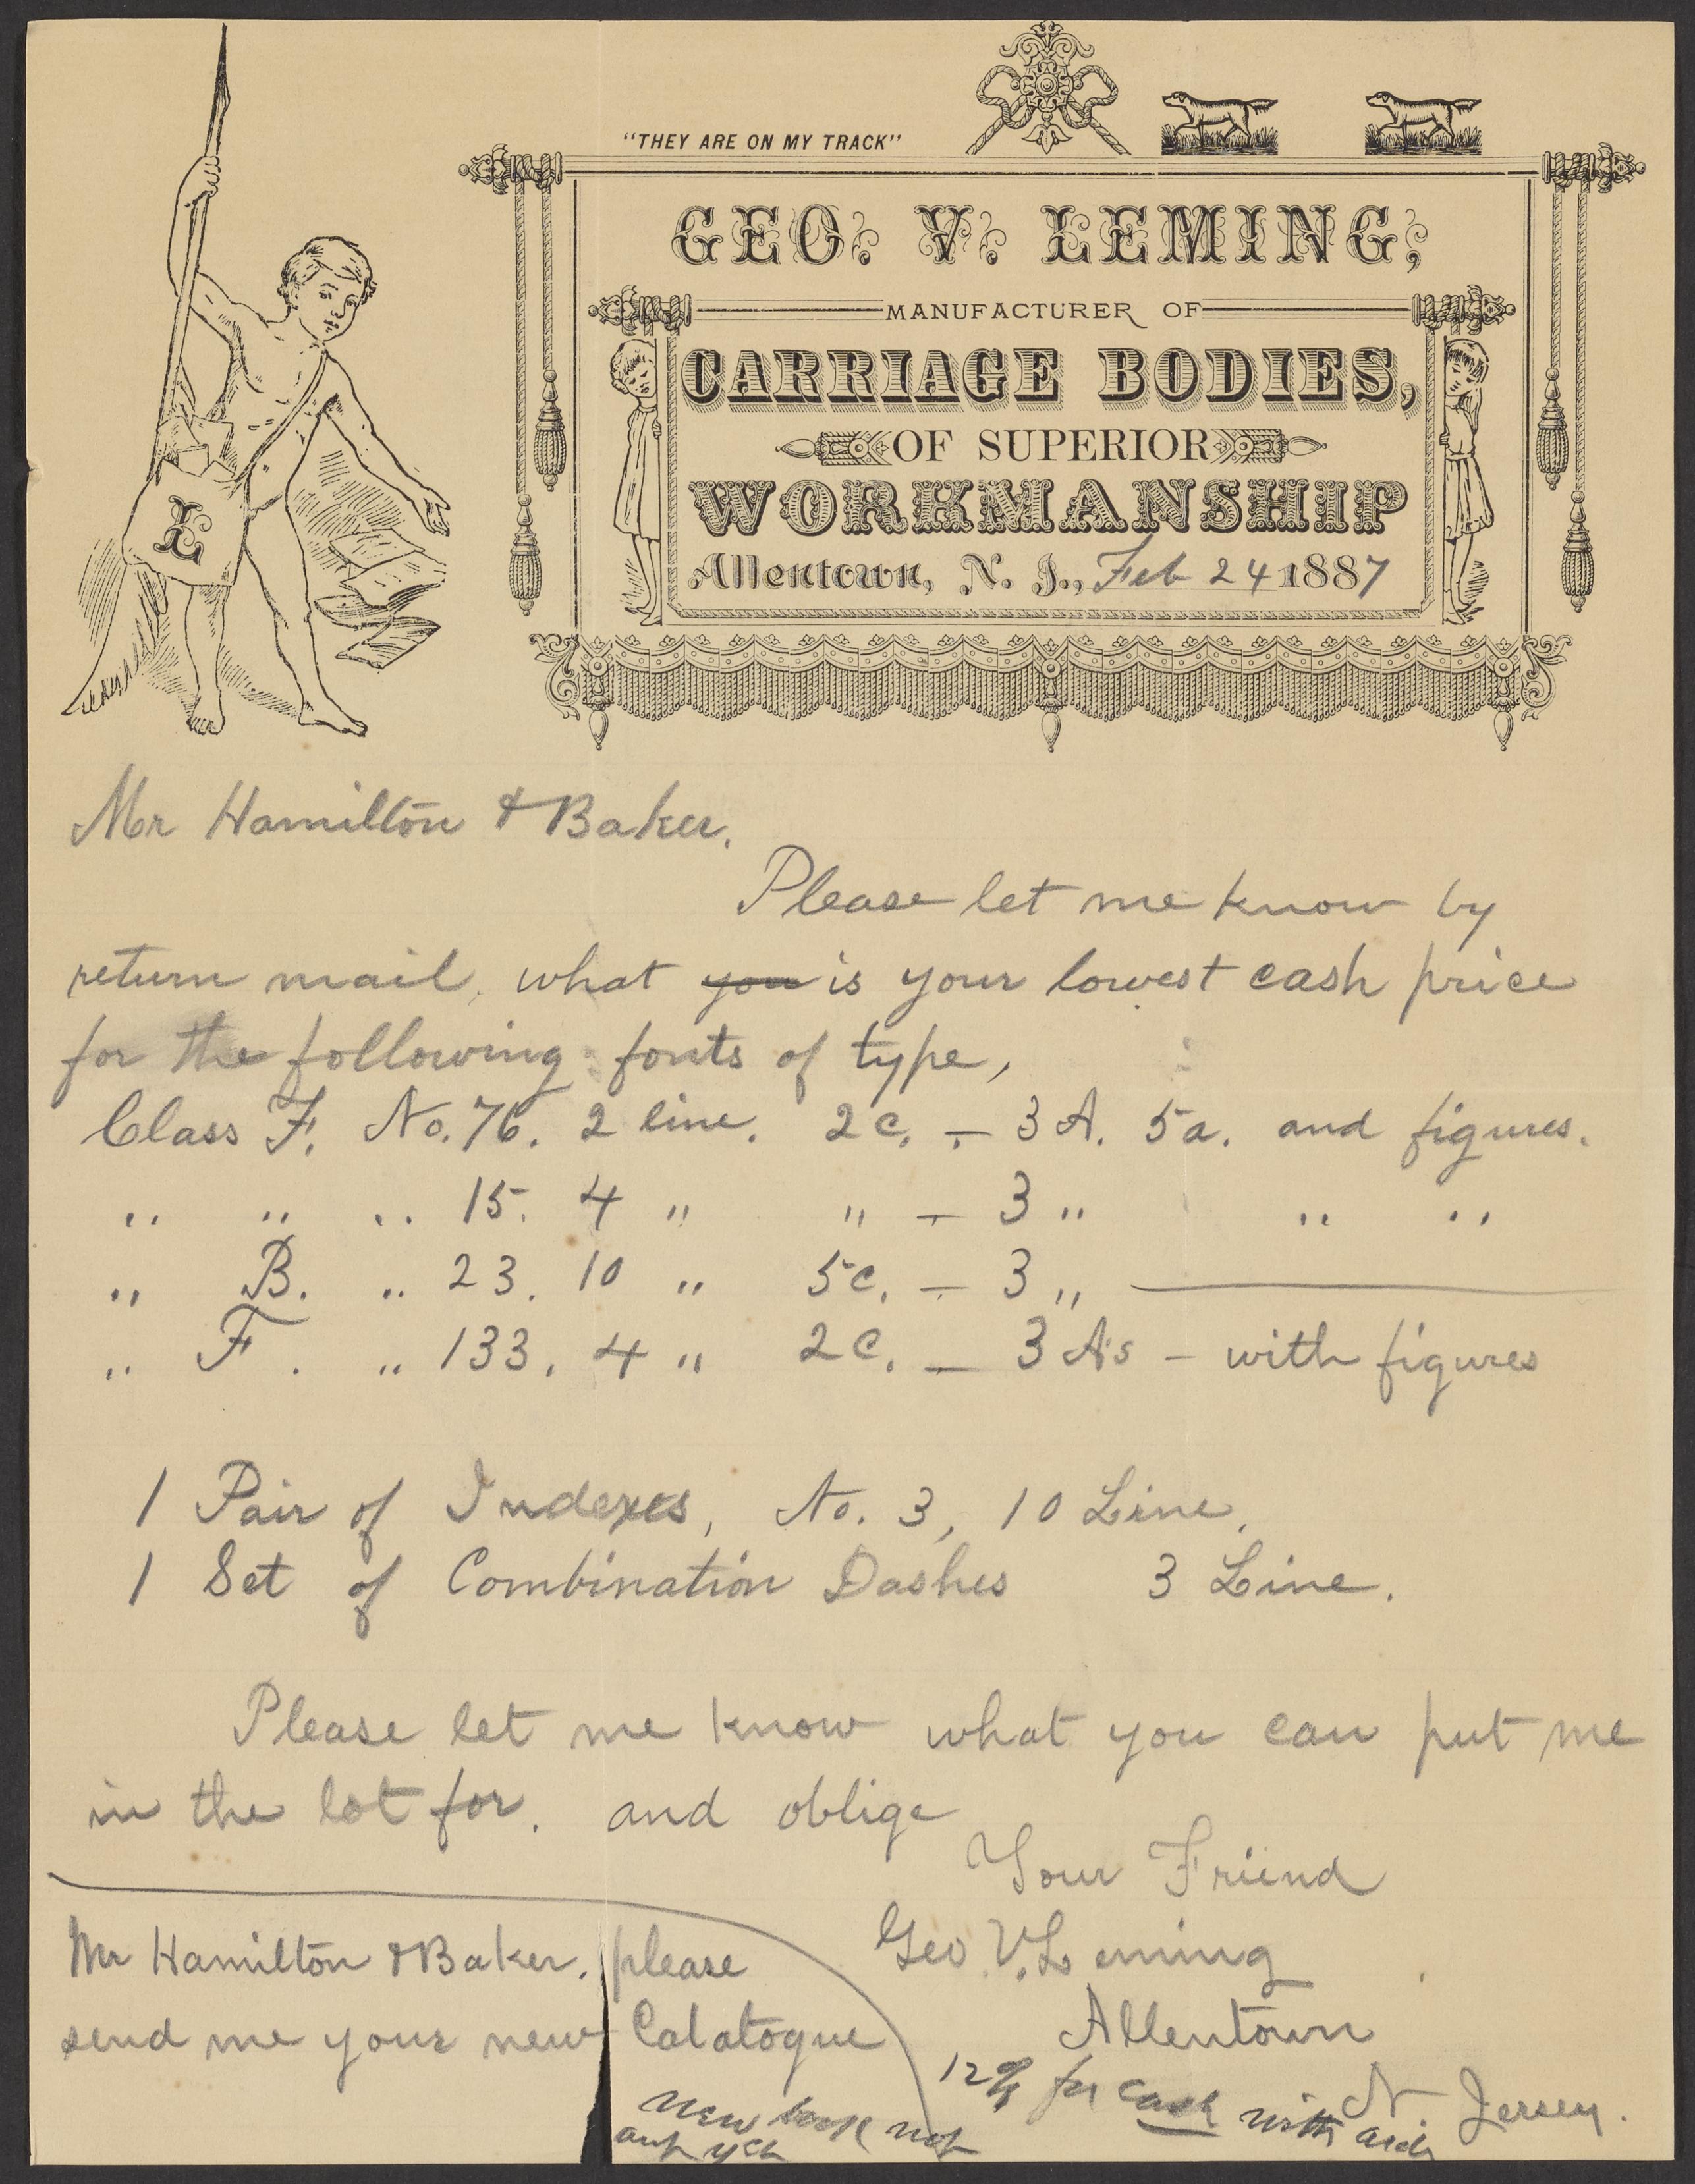 "THEY ARE ON MY TRACK"
GEO. V. LEMING,
MANUFACTURER OF
CARRIAGE BODIES,
OF SUPERIOR
WORKMANSHIP
Allentown, N. J., Feb 24 1887
L
Mr Hamilton & Baker.
Please let me know by
return mail, what you is your lowest cash price
for the following fonts of type,
Class F. No. 76. 2 line. 2c. - 3A. 5a. and figures.
" " " 15. 4 " " - 3 " " "
" B. " 23. 10 " 5c. - 3 "
" F. " 133. 4 " 2c. - 3 A's - with figures
1 Pair of Indexes, No. 3, 10 Line.
1 Set of Combination Dashes 3 Line.
Please let me know what you can put me
in the lot for. and oblige
Your Friend
Geo. V. Leming
Allentown
N. Jersey.
Mr Hamilton & Baker. please
send me your new Calatogue
12% for cash with
new book not
yet